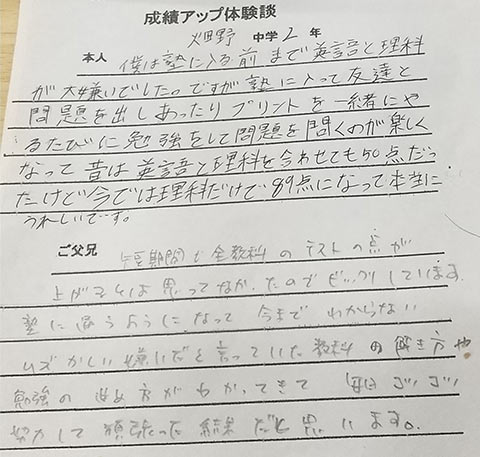 成績アップ体験談
畑野 中学2年
本人 僕は塾に入る前まで英語と理科
が大嫌いでした。ですが塾に入って友達と
問題を出しあったりプリントを一緒にや
るたびに勉強をして問題を問くのが楽しく
なって昔は英語と理科を合わせても50点だっ
たけど今では理科だけで89点になって本当に
うれしいです。
ご父兄 短期間で全教科のテストの点が
上がるとは思ってなかったのでビックリしています。
塾に通うようになって今までわからない
ムズかしい嫌いだと言っていた教科の解き方や
勉強の進め方がわかってきて 毎日コツコツ
努力して頑張った結果だと思います。